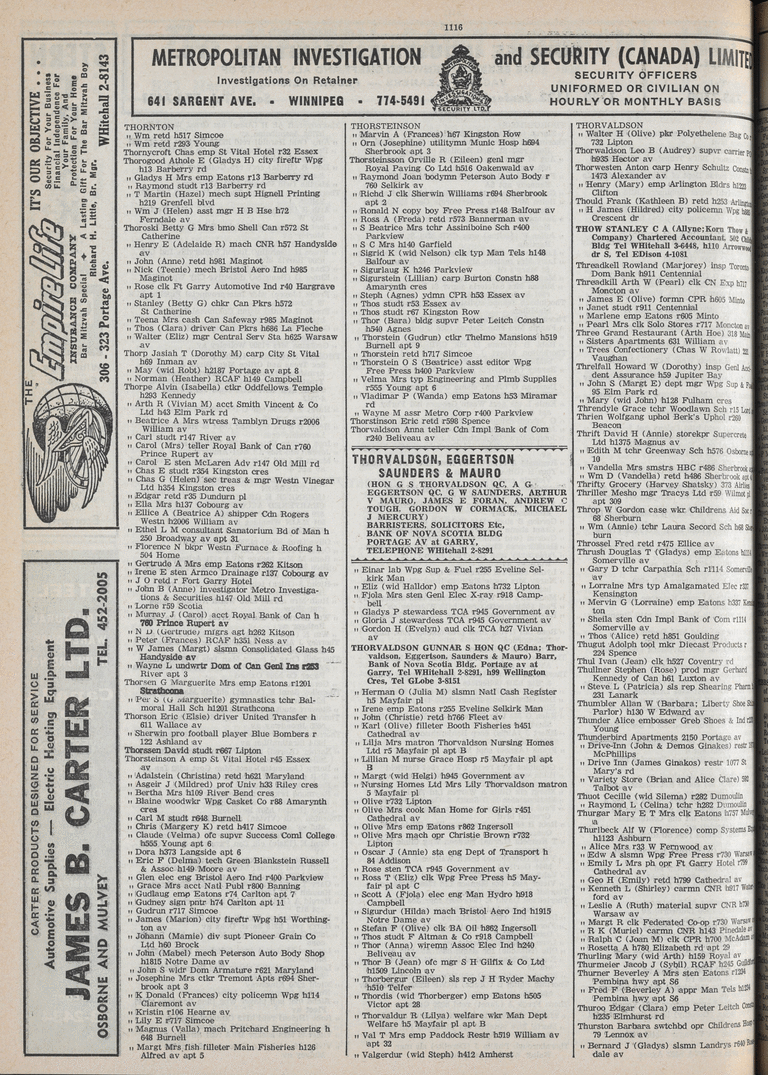 1116
METROPOLITAN INVESTIGATION and SECURITY (CANADA) LIMITED
Investigations On Retainer
641 SARGENT AVE. - WINNIPEG - 774-5491
SECURITY LTD.
SECURITY OFFICERS
UNIFORMED OR CIVILIAN ON
HOURLY OR MONTHLY BASIS
THE
Empire Life
INSURANCE COMPANY
IT'S OUR OBJECTIVE ...
Security For Your Business
Financial Independence For
Your Family, And
Protection For Your Home
Bar Mitzvah Special + A Lasting Gift For The Bar Mitzvah Boy
Richard H. Little, Br. Mgr.
306 - 323 Portage Ave. WHitehall 2-8143
CARTER PRODUCTS DESIGNED FOR SERVICE
Automotive Supplies — Electric Heating Equipment
JAMES B. CARTER LTD.
OSBORNE AND MULVEY TEL. 452-2005
THORNTON
" Wm retd h517 Simcoe
" Wm retd r293 Young
Thornycroft Chas emp St Vital Hotel r32 Essex
Thorogood Athole E (Gladys H) city firefttr Wpg
h13 Barberry rd
" Gladys H Mrs emp Eatons r13 Barberry rd
" Raymond studt r13 Barberry rd
" T Martin (Hazel) mech supt Hignell Printing
h219 Grenfell blvd
" Wm J (Helen) asst mgr H B Hse h72
Ferndale av
Thoroski Betty G Mrs bmo Shell Can r572 St
Catherine
" Henry E (Adelaide R) mach CNR h57 Handyside
av
" John (Anne) retd h981 Maginot
" Nick (Teenie) mech Bristol Aero Ind h985
Maginot
" Rose clk Ft Garry Automotive Ind r40 Hargrave
apt 1
" Stanley (Betty G) chkr Can Pkrs h572
St Catherine
" Teena Mrs cash Can Safeway r985 Maginot
" Thos (Clara) driver Can Pkrs h686 La Fleche
" Walter (Eliz) mgr Central Serv Sta h625 Warsaw
av
Thorp Jasiah T (Dorothy M) carp City St Vital
h69 Inman av
" May (wid Robt) h2187 Portage av apt 8
" Norman (Heather) RCAF h149 Campbell
Thorpe Alvin (Isabella) ctkr Oddfellows Temple
h293 Kennedy
" Arth R (Vivian M) acct Smith Vincent & Co
Ltd h43 Elm Park rd
" Beatrice A Mrs wtress Tamblyn Drugs r2006
William av
" Carl studt r147 River av
" Carol (Mrs) teller Royal Bank of Can r760
Prince Rupert av
" Carol E sten McLaren Adv r147 Old Mill rd
" Chas E studt r354 Kingston cres
" Chas G (Helen) sec treas & mgr Westn Vinegar
Ltd h354 Kingston cres
" Edgar retd r35 Dundurn pl
" Ella Mrs h137 Cobourg av
" Ellice A (Beatrice A) shipper Cdn Rogers
Westn h2006 William av
" Ethel L M consultant Sanatorium Bd of Man h
250 Broadway av apt 31
" Florence N bkpr Westn Furnace & Roofing h
504 Home
" Gertrude A Mrs emp Eatons r262 Kitson
" Irene E sten Armco Drainage r137 Cobourg av
" J O retd r Fort Garry Hotel
" John B (Anne) investigator Metro Investiga-
tions & Securities h147 Old Mill rd
" Lorne r59 Scotia
" Murray J (Carol) acct Royal Bank of Can h
760 Prince Rupert av
" N D (Gertrude) mfgrs agt h262 Kitson
" Peter (Frances) RCAF h351 Ness av
" W James (Margt) slsmn Consolidated Glass h45
Handyside av
" Wayne L undwrtr Dom of Can Genl Ins r253
River apt 3
Thorsen G Marguerite Mrs emp Eatons r1201
Strathcona
" Per S (G Marguerite) gymnastics tchr Bal-
moral Hall Sch h1201 Strathcona
Thorson Eric (Elsie) driver United Transfer h
611 Wallace av
" Sherwin pro football player Blue Bombers r
122 Ashland av
Thorssen David studt r667 Lipton
Thorsteinson A emp St Vital Hotel r45 Essex
av
" Adalstein (Christina) retd h621 Maryland
" Asgeir J (Mildred) prof Univ h33 Riley cres
" Bertha Mrs h109 River bend cres
" Blaine woodwkr Wpg Casket Co r88 Amarynth
cres
" Carl M studt r648 Burnell
" Chris (Margery K) retd h417 Simcoe
" Claude (Velma) ofc supvr Success Coml College
h555 Young apt 6
" Dora h373 Langside apt 6
" Eric F (Delma) tech Green Blankstein Russell
& Assoc h149 Moore av
" Glen elec eng Bristol Aero Ind r400 Parkview
" Grace Mrs acct Natl Publ r800 Banning
" Gudlaug emp Eatons r74 Carlton apt 7
" Gudney sign pntr h74 Carlton apt 11
" Gudrun r717 Simcoe
" James (Marion) city firefttr Wpg h51 Worthing-
ton av
" Johann (Mamie) div supt Pioneer Grain Co
Ltd h60 Brock
" John (Mabel) mech Peterson Auto Body Shop
h1815 Notre Dame av
" John S widr Dom Armature r621 Maryland
" Josephine Mrs ctkr Tremont Apts r694 Sher-
brook apt 3
" K Donald (Frances) city policemn Wpg h114
Claremont av
" Kristin r106 Hearne av
" Lily E r717 Simcoe
" Magnus (Valla) mach Pritchard Engineering h
648 Burnell
" Margt Mrs fish filleter Main Fisheries h126
Alfred av apt 5
THORSTEINSON
" Marvin A (Frances) h67 Kingston Row
" Orn (Josephine) utilitymn Munic Hosp h694
Sherbrook apt 3
Thorsteinsson Orville R (Eileen) genl mgr
Royal Paving Co Ltd h516 Oakenwald av
" Raymond Joan bodymn Peterson Auto Body r
760 Selkirk av
" Richd J clk Sherwin Williams r694 Sherbrook
apt 2
" Ronald N copy boy Free Press r148 Balfour av
" Ross A (Freda) r572 Bannerman av
" S Beatrice Mrs tchr Assiniboine Sch r400
Parkview
" S C Mrs h140 Garfield
" Sigrid K (wid Nelson) clk typ Man Tels h148
Balfour av
" Sigurlaug K h246 Parkview
" Sigurstein (Lillian) carp Burton Constn h88
Amarynth cres
" Steph (Agnes) ydmn CPR h53 Essex av
" Thos studt r53 Essex av
" Thos studt r67 Kingston Row
" Thor (Bara) bldg supvr Peter Leitch Constn
h540 Agnes
" Thorstein (Gudrun) ctkr Thelmo Mansions h519
Burnell apt 9
" Thorstein retd h717 Simcoe
" Thorstein O S (Beatrice) asst editor Wpg
Free Press h400 Parkview
" Velma Mrs typ Engineering and Plmb Supplies
r555 Young apt 6
" Vladimar P (Wanda) emp Eatons h53 Miramar
rd
" Wayne M assr Metro Corp r400 Parkview
Thorstinson Eric retd r598 Spence
Thorvaldson Anna teller Cdn Impl Bank of Com
r240 Beliveau av
THORVALDSON, EGGERTSON
SAUNDERS & MAURO
(HON G S THORVALDSON QC, A G
EGGERTSON QC, G W SAUNDERS, ARTHUR
V MAURO, JAMES E FORAN, ANDREW C
TOUGH, GORDON W CORMACK, MICHAEL
J MERCURY)
BARRISTERS, SOLICITORS Etc,
BANK OF NOVA SCOTIA BLDG
PORTAGE AV at GARRY,
TELEPHONE WHitehall 2-8291
" Einar lab Wpg Sup & Fuel r255 Eveline Sel-
kirk Man
" Eliz (wid Halldor) emp Eatons h732 Lipton
" Fjola Mrs sten Genl Elec X-ray r918 Camp-
bell
" Gladys P stewardess TCA r945 Government av
" Gloria J stewardess TCA r945 Government av
" Gordon H (Evelyn) aud clk TCA h27 Vivian
av
THORVALDSON GUNNAR S HON QC (Edna; Thor-
valdson, Eggertson, Saunders & Mauro) Barr,
Bank of Nova Scotia Bldg, Portage av at
Garry, Tel WHitehall 2-8291, h99 Wellington
Cres, Tel GLobe 3-8151
" Herman O (Julia M) slsmn Natl Cash Register
h5 Mayfair pl
" Irene emp Eatons r255 Eveline Selkirk Man
" John (Christie) retd h766 Fleet av
" Karl (Olive) filleter Booth Fisheries h451
Cathedral av
" Lilja Mrs matron Thorvaldson Nursing Homes
Ltd r5 Mayfair pl apt B
" Lillian M nurse Grace Hosp r5 Mayfair pl apt
B
" Margt (wid Helgi) h945 Government av
" Nursing Homes Ltd Mrs Lily Thorvaldson matron
5 Mayfair pl
" Olive r732 Lipton
" Olive Mrs cook Man Home for Girls r451
Cathedral av
" Olive Mrs emp Eatons r862 Ingersoll
" Olive Mrs mach opr Christie Brown r732
Lipton
" Oscar J (Annie) sta eng Dept of Transport h
84 Addison
" Rose sten TCA r945 Government av
" Ross T (Eliz) clk Wpg Free Press h5 May-
fair pl apt C
" Scott A (Fjola) elec eng Man Hydro h918
Campbell
" Sigurdur (Hilda) mach Bristol Aero Ind h1915
Notre Dame av
" Stefan F (Olive) clk BA Oil h862 Ingersoll
" Thos studt F Altman & Co r918 Campbell
" Thor (Anna) wiremn Assoc Elec Ind h240
Beliveau av
" Thor B (Jean) ofc mgr S H Gilfix & Co Ltd
h1509 Lincoln av
" Thorbergur (Eileen) sls rep J H Ryder Machy
h519 Telfer
" Thordis (wid Thorberger) emp Eatons h505
Victor apt 28
" Thorvaldur R (Lilya) welfare wkr Man Dept
Welfare h5 Mayfair pl apt B
" Val T Mrs emp Paddock Restr h519 William av
apt 32
" Valgerdur (wid Steph) h412 Amherst
THORVALDSON
" Walter H (Olive) pkr Polyethelene Bag Co r
732 Lipton
Thorwaldson Leo B (Audrey) supvr carrier
h935 Hector av
Thorwesten Anton carp Henry Schultz Constn
1473 Alexander av
" Henry (Mary) emp Arlington Bldrs h1223
Clifton
Thould Frank (Kathleen B) retd h253 Arlington
" H James (Hildred) city policemn Wpg
Crescent dr
THOW STANLEY C A (Allyne; Korn Thow &
Company) Chartered Accountant, 502
Bldg Tel WHitehall 3-6448, h110 Arrowwood
dr S, Tel EDison 4-1081
Threadkell Rowland (Marjorey) insp Toronto
Dom Bank h911 Centennial
Threadkill Arth W (Pearl) clk CN Exp h717
Moncton av
" James E (Olive) formn CPR h605 Minto
" Janet studt r911 Centennial
" Marlene emp Eatons r605 Minto
" Pearl Mrs clk Solo Stores r717 Moncton av
Three Grand Restaurant (Arth Hoe) 318 Main
" Sisters Apartments 631 William av
" Trees Confectionery (Chas W Rowlatt)
Vaughan
Threlfall Howard W (Dorothy) insp Genl Acci-
dent Assurance h59 Jupiter Bay
" John S (Margt E) dept mgr Wpg Sup & Fuel
95 Elm Park rd
" Mary (wid John) h128 Fulham cres
Threndyle Grace tchr Woodlawn Sch r15
Thrien Wolfgang uphol Berk's Uphol r260
Beacon
Thrift David H (Annie) storekpr Supercrete
Ltd h1375 Magnus av
" Edith M tchr Greenway Sch h576 Osborne
10
" Vandella Mrs smstrs HBC r486 Sherbrook
" Wm D (Vandella) retd h486 Sherbrook apt
Thrifty Grocery (Harvey Shatsky) 373
Thriller Mesho mgr Tracys Ltd r59 Wilmot pl
apt 309
Throp W Gordon case wkr Childrens Aid Soc r
68 Sherburn
" Wm (Annie) tchr Laura Secord Sch h68 Sher-
burn
Throssel Fred retd r475 Ellice av
Thrush Douglas T (Gladys) emp
Somerville av
" Gary D tchr Carpathia Sch r1114 Somerville
av
" Lorraine Mrs typ Amalgamated Elec
Kensington
" Mervin G (Lorraine) emp Eatons h337
ton
" Sheila sten Cdn Impl Bank of Com r1114
Somerville av
" Thos (Alice) retd h851 Goulding
Thugut Adolph tool mkr Diecast Products r
224 Spence
Thul Ivan (Jean) clk h527 Coventry rd
Thullner Stephen (Rose) prod mgr Gerhard
Kennedy of Can h61 Luxton av
" Steve L (Patricia) sls rep Shearing Pharm
231 Lanark
Thumbler Allan W (Barbara; Liberty Shoe
Parlor) h130 W Edward av
Thunder Alice embosser Greb Shoes & Ind
Young
Thunderbird Apartments 2150 Portage av
" Drive-Inn (John & Demos Ginakes) restr
McPhillips
" Drive Inn (James Ginakos) restr 1077 St
Mary's rd
" Variety Store (Brian and Alice Clare)
Talbot av
Thuot Cecille (wid Silema) r282 Dumoulin
" Raymond L (Celina) tchr h282 Dumoulin
Thurgar Mary E T Mrs clk Eatons h757
a
Thuribeck Alf W (Florence) comp Systems
h1123 Ashburn
" Alice Mrs r33 W Fernwood av
" Edw A slsmn Wpg Free Press r730 Warsaw
" Emily L Mrs ph opr Ft Garry Hotel r799
Cathedral av
" Geo H (Emily) retd h799 Cathedral av
" Kenneth L (Shirley) carmn CNR h917 Water-
ford av
" Leslie A (Ruth) material supvr CNR h730
Warsaw av
" Margt R clk Federated Co-op r730 Warsaw
" R K (Muriel) carmn CNR h143 Pinedale av
" Ralph C (Joan M) clk CPR h700 McAdam av
" Rosetta A h780 Elizabeth rd apt 29
Thurling Mary (wid Arth) h159 Royal av
Thurmeier Jacob J (Sybil) RCAF h245
Thurner Beverley A Mrs sten Eatons r1294
Pembina hwy apt S6
" Fred F (Beverley A) appr Man Tels h1294
Pembina hwy apt S6
Thuroq Edgar (Clara) emp Peter Leitch Constn
h235 Elmhurst rd
Thurston Barbara swtchbd opr Childrens Hosp
79 Lennox av
" Bernard J (Gladys) slsmn Landrys r640
dale av